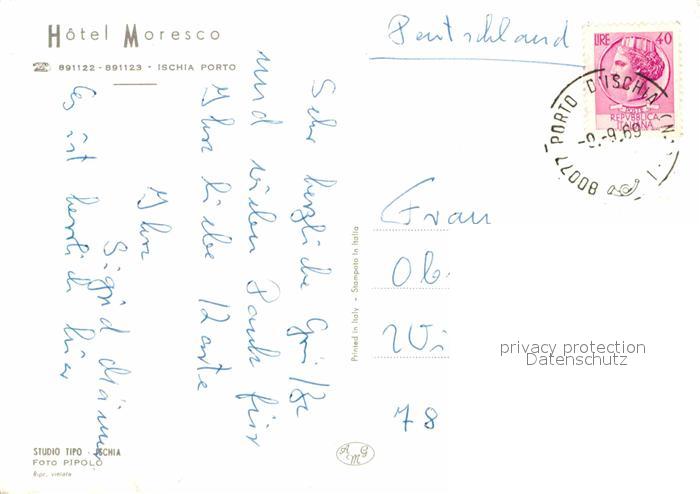 Hôtel Moresco
☎ 891122 - 891123 - ISCHIA PORTO
Deutschland
LIRE 40
POSTE
REPUBBLICA
ITALIANA
80077 - PORTO D'ISCHIA (N.
-9.69
Sehr herzliche Grüße
und vielen Dank für
Ihre liebe Karte
Ihre
Sigrid
Es ist herrlich hier
Frau
Ob.
Wi
78
Printed in Italy - Stampato in Italia
privacy protection
Datenschutz
STUDIO TIPO - ISCHIA
FOTO PIPOLO
Ripr. vietata
AMG